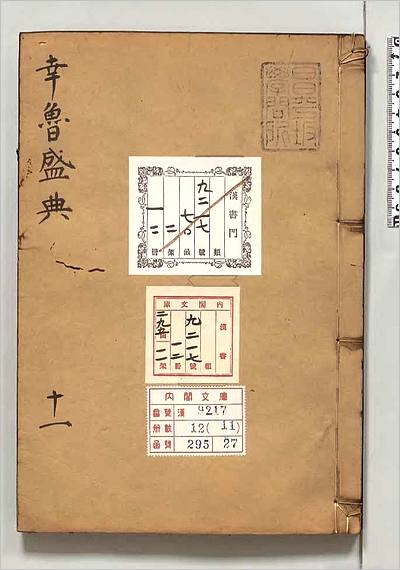 幸魯盛典
十一
昌平坂
學問所
漢書門
九二一七
類
號
函
二
架
一二
冊
內閣文庫
漢書
九二一七
類
號
一二
冊
函
架
內閣文庫
番號 漢 9217
冊數 12( 11)
函號 295 27